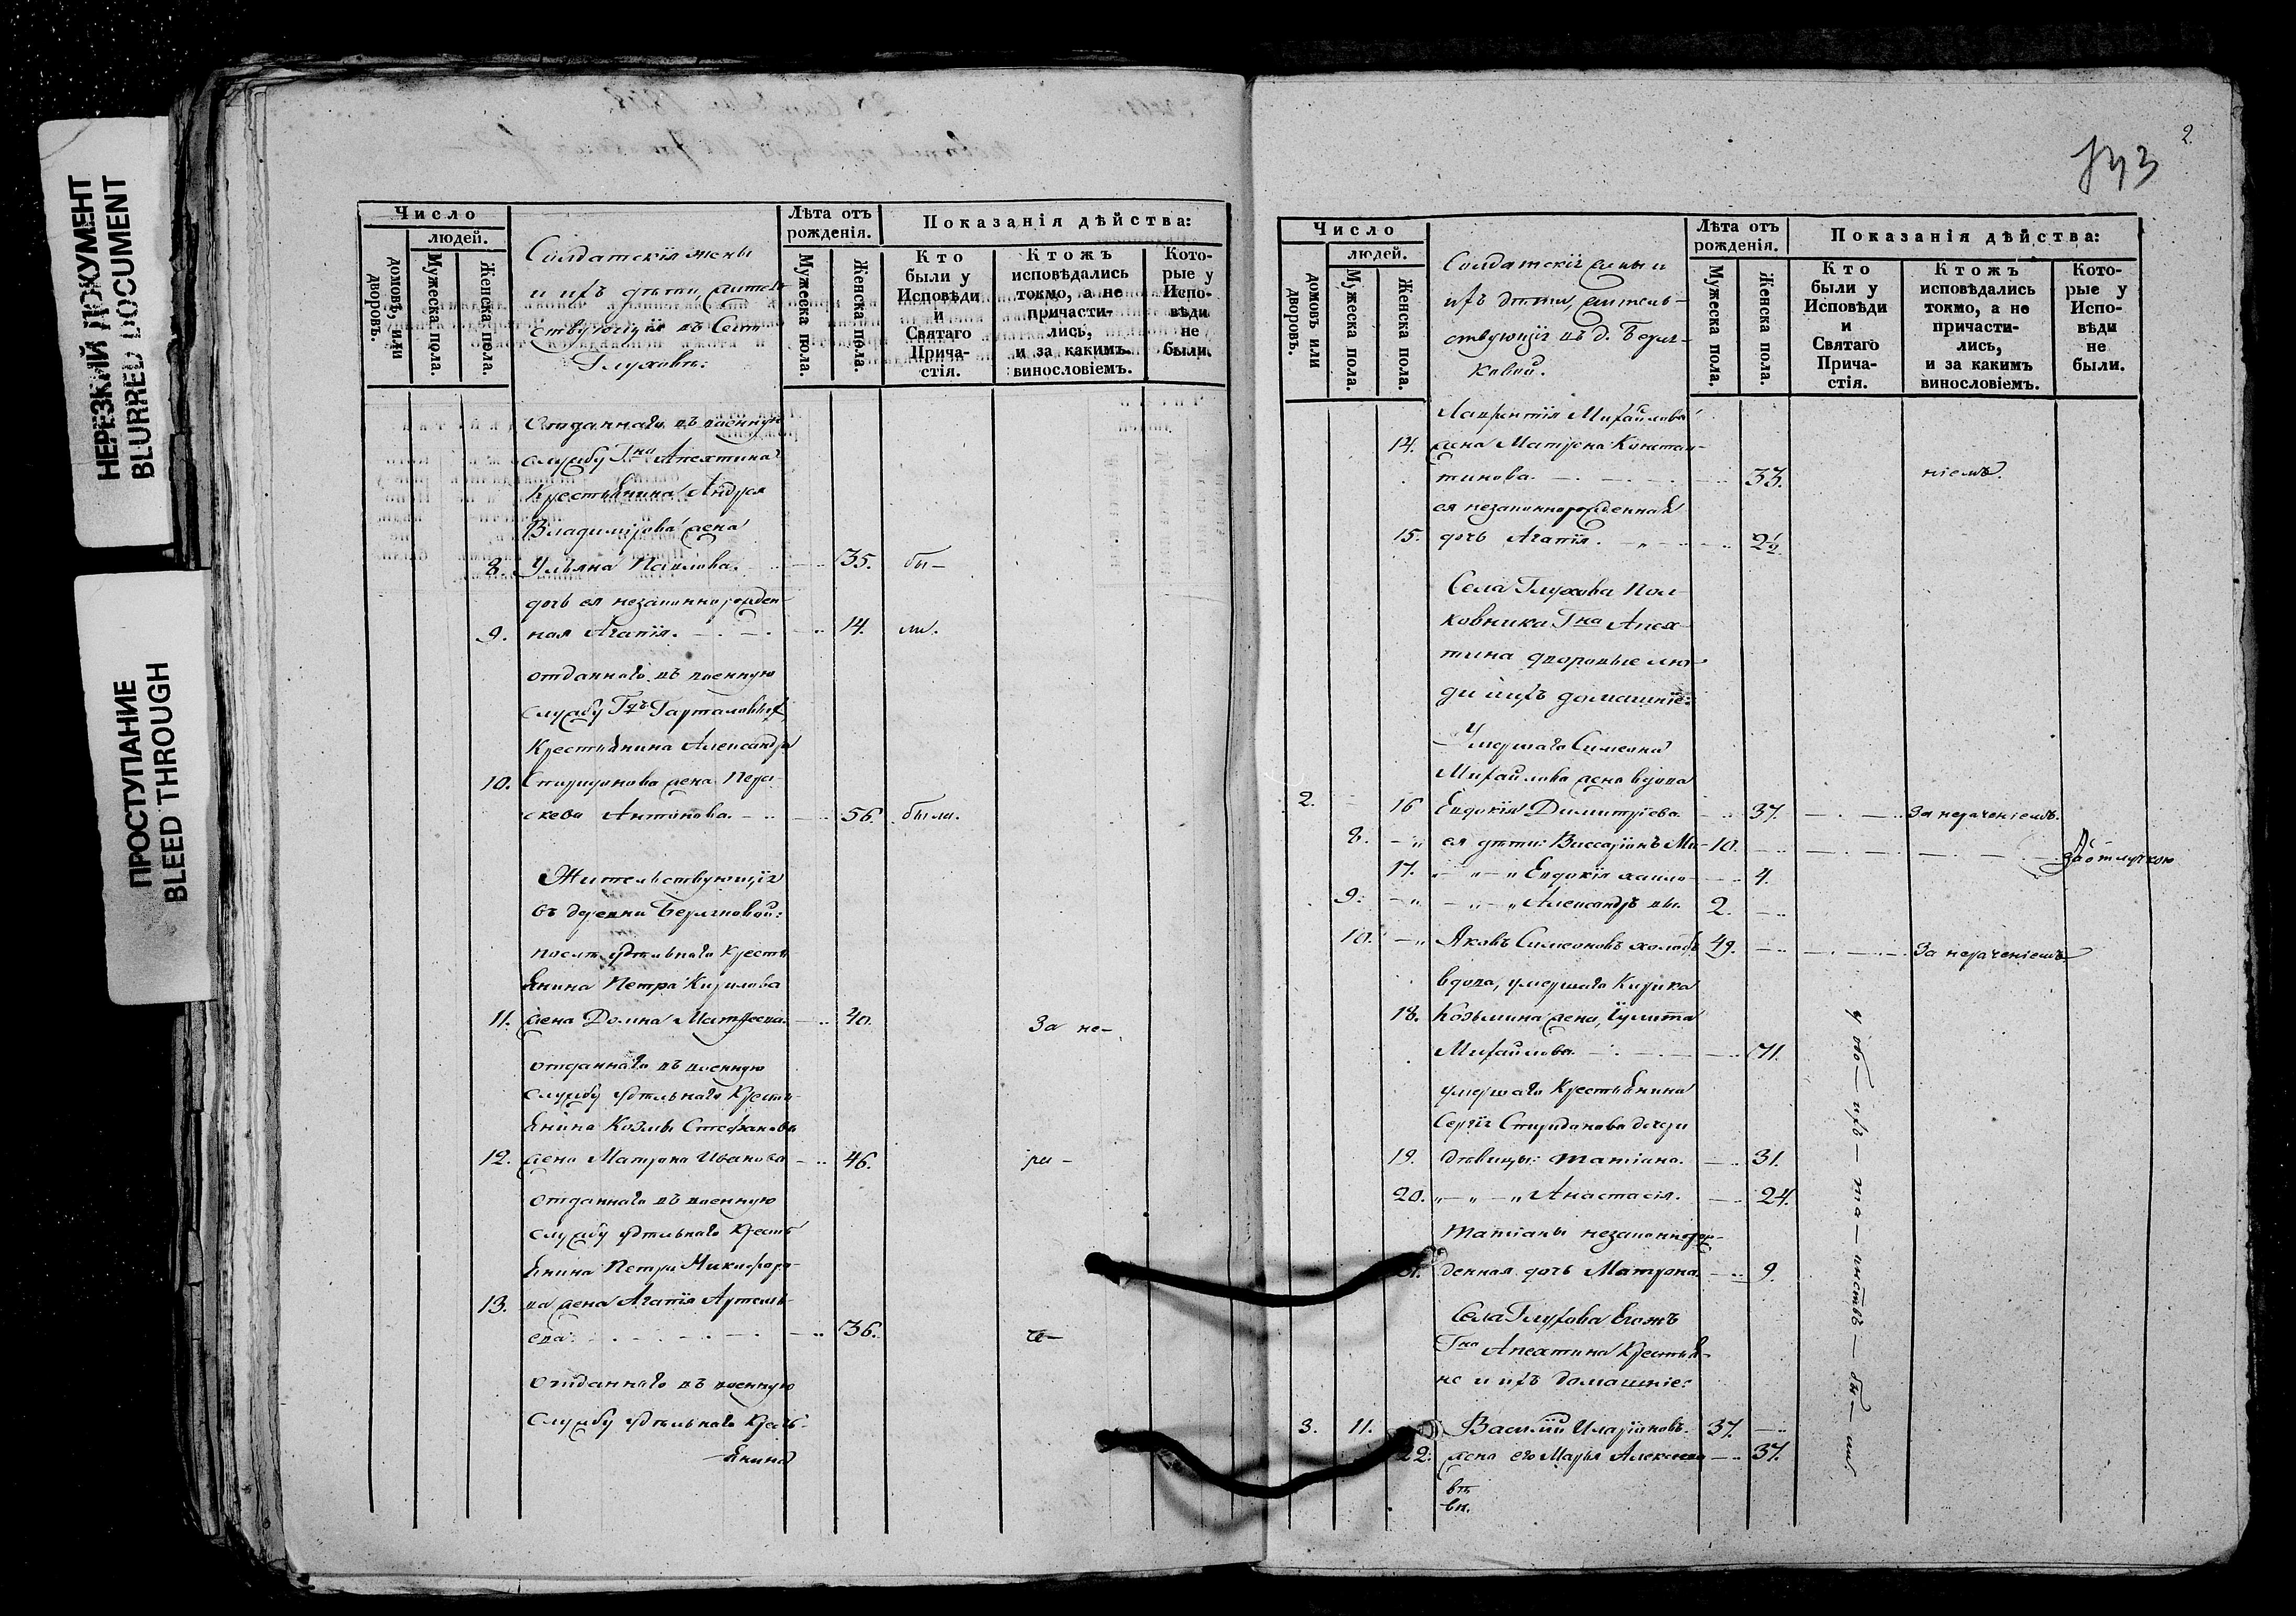 НЕРЕЗКИЙ ДОКУМЕНТ
BLURRED DOCUMENT
ПРОСТУПАНИЕ
BLEED THROUGH
Число
людей.
домовъ, или дворовъ.
Мужеска пола.
Женска пола.
Солдатскія жены
и ихъ дѣти, житель
ствующія въ Селѣ
Глуховѣ.
Лѣта отъ рожденія.
Мужеска пола.
Женска пола.
Показанія дѣйства:
Кто были у Исповѣди и Святаго Прича-стія.
Ктожъ исповѣдались токмо, а не причасти-лись, и за какимъ винословіемъ.
Кото-рые у Испо-вѣди не были.
Отданнаго въ военную
службу Гна Апехтина
Крестьянина Андрея
Владимірова жена
8. Ульяна Павлова. 35. бы-
дочь ея незаконнорожден
9. ная Агапія. 14. ли.
отданнаго въ военную
службу
Крестьянина Александра
10. Спиридонова жена Пара-
скева Антонова. 56. были.
Жительствующія
въ деревни
послѣ удѣльнаго кресть
янина Петра Кирилова
11. жена Домна Матѳеева. 40. За не-
отданнаго въ военную
службу удѣльнаго Кресть-
янина Козмы Стефанова
12. жена Матрона Иванова 46. ра-
отданнаго въ военную
службу удѣльнаго Кресть
янина Петра Никифоро-
13. ва жена Агапія Артемь-
ева. 36. че-
отданнаго въ военную
службу удѣльнаго Кресть-
янина
2.
743
Число
людей.
домовъ или дворовъ.
Мужеска пола.
Женска пола.
Солдатскія жены и
ихъ дѣти, житель-
ствующія въ д.
ковой.
Лѣта отъ рожденія.
Мужеска пола.
Женска пола.
Показанія дѣйства:
Кто были у Исповѣди и Святаго Прича-стія.
Ктожъ исповѣдались токмо, а не причасти-лись, и за какимъ винословіемъ.
Кото-рые у Испо-вѣди не были.
Лаврентія Михайлова
14. жена Матрона Констан-
тинова. 33. ніемъ.
ея незаконнорожденная
15. дочь Агапія. 2½.
Села Глухова Пол-
ковника Гна Апех-
тина дворовые лю-
ди и ихъ домашніе:
Умершаго Симеона
Михайлова жена вдова
2. 16 Евдокія Димитріева. 37. За нераченіемъ.
8. ея дѣти: Виссаріонъ Ми- 10. За отлучкою
17. Евдокія хайло- 4.
9. Александръ вы. 2.
10. Яковъ Симеоновъ холостъ 49. За нераченіемъ
вдова, умершаго Кирика
18. Козьмина жена, Іулитта
Михайлова. 71.
умершаго Крестьянина
Сергія Спиридонова дочери
19. дѣвицы: Татіана. 31.
20. Анастасія. 24.
Татіаны незаконнорож-
21. денная дочь Матрона. 9.
Села Глухова Егожъ
Гна Апехтина Крестья-
не и ихъ домашніе:
3. 11. Василій Иларіоновъ. 37.
22. жена его Марья Алексеева 37.